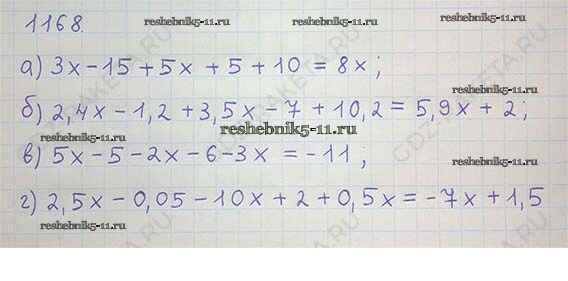 1168.
reshebnik5-11.ru
reshebnik5-11.ru
а) 3x – 15 + 5x + 5 + 10 = 8x;
reshebnik5-11.ru
б) 2,4x – 1,2 + 3,5x – 7 + 10,2 = 5,9x + 2;
reshebnik5-11.ru
в) 5x – 5 – 2x – 6 – 3x = – 11;
reshebnik5-11.ru
г) 2,5x – 0,05 – 10x + 2 + 0,5x = – 7x + 1,5
reshebnik5-11.ru
reshebnik5-11.ru
GDZ-RAKETA.RU